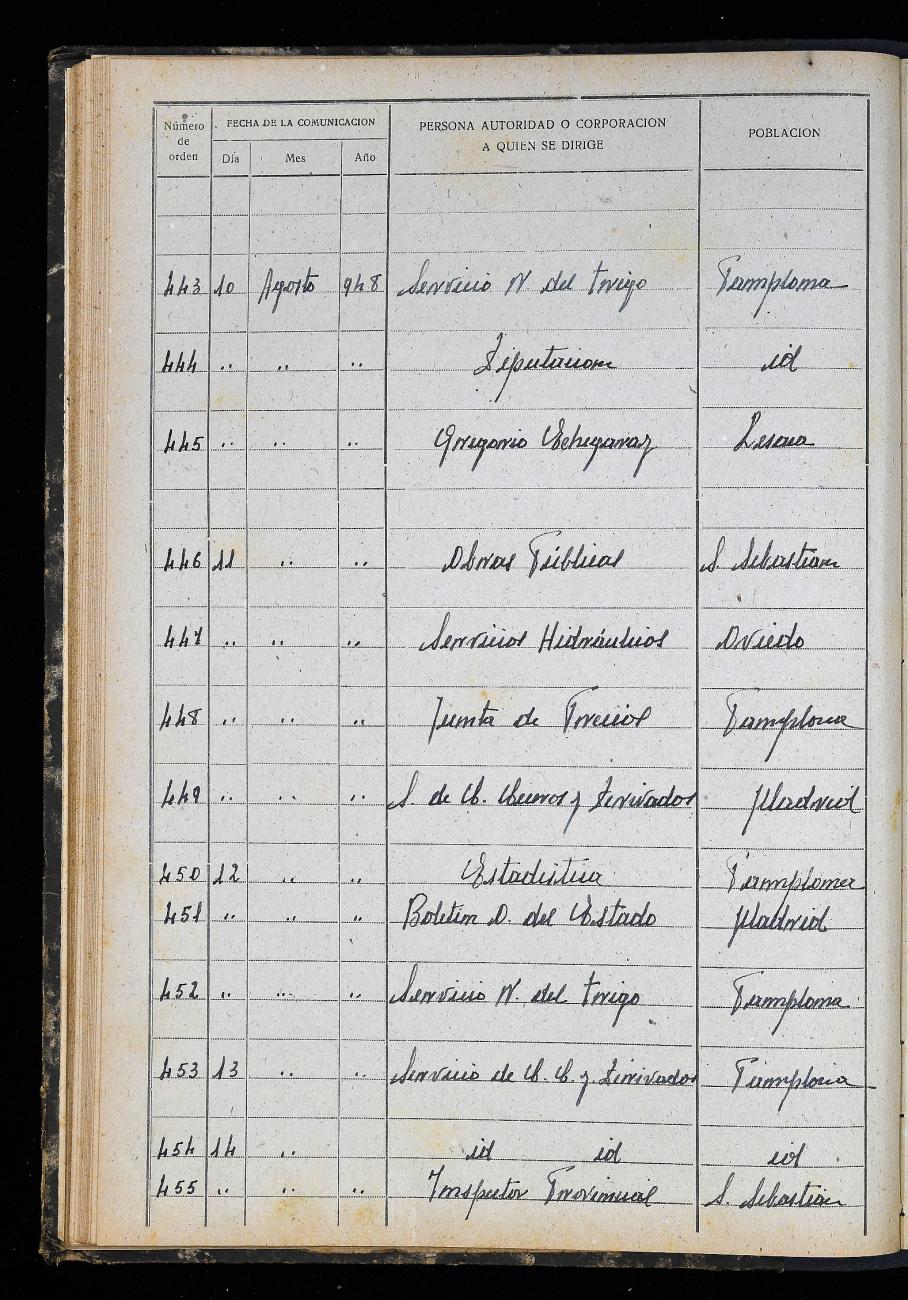 Número de orden FECHA DE LA COMUNICACION PERSONA AUTORIDAD O CORPORACION A QUIEN SE DIRIGE POBLACION
Día Mes Año
443 10 Agosto 948 Servicio N del Trigo Pamplona
444 .. .. .. Diputacion id
445 .. .. .. Gregorio Echegaray Lesaca
446 11 .. .. Obras Públicas S. Sebastian
447 .. .. .. Servicios Hidráulicos Oviedo
448 .. .. .. Junta de Precios Pamplona
449 .. .. .. S. de C. Cueros y Derivados Madrid
450 12 .. .. Estadistica Pamplona
451 .. .. .. Boletin O. del Estado Madrid
452 .. .. .. Servicio N. del Trigo Pamplona
453 13 .. .. Servicio de C. C. y Derivados Pamplona
454 14 .. id id id
455 .. .. .. Inspector Provincial S. Sebastián